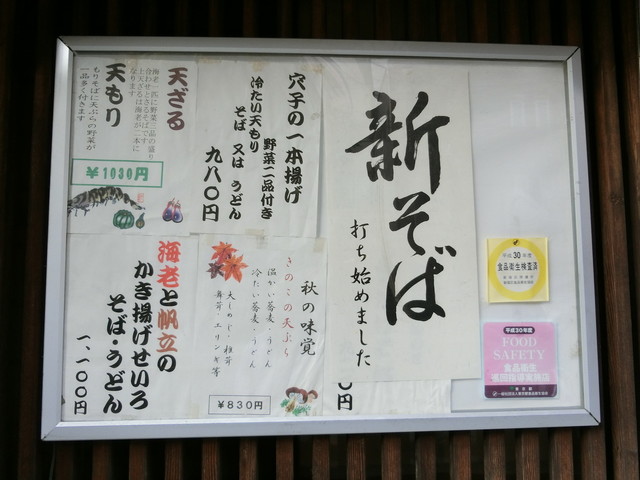 新そば
打ち始めました
円
穴子の一本揚げ
野菜二品付き
冷たい天もり
そば 又は うどん
九八〇円
天ざる
海老二匹に野菜三品の盛り
合わせとざるそばです
上天ざるは海老が三本に
なります
天もり
もりそばに天ぷらの野菜が
一品多く付きます
¥1030円
秋の味覚
きのこの天ぷら
温かい蕎麦・うどん
冷たい蕎麦・うどん
大しめじ・椎茸
舞茸・エリンギ等
¥830円
海老と帆立の
かき揚げせいろ
そば・うどん
一、一〇〇円
平成30年度
食品衛生検査済
平成30年度
FOOD
SAFETY
食品衛生
巡回指導実施店